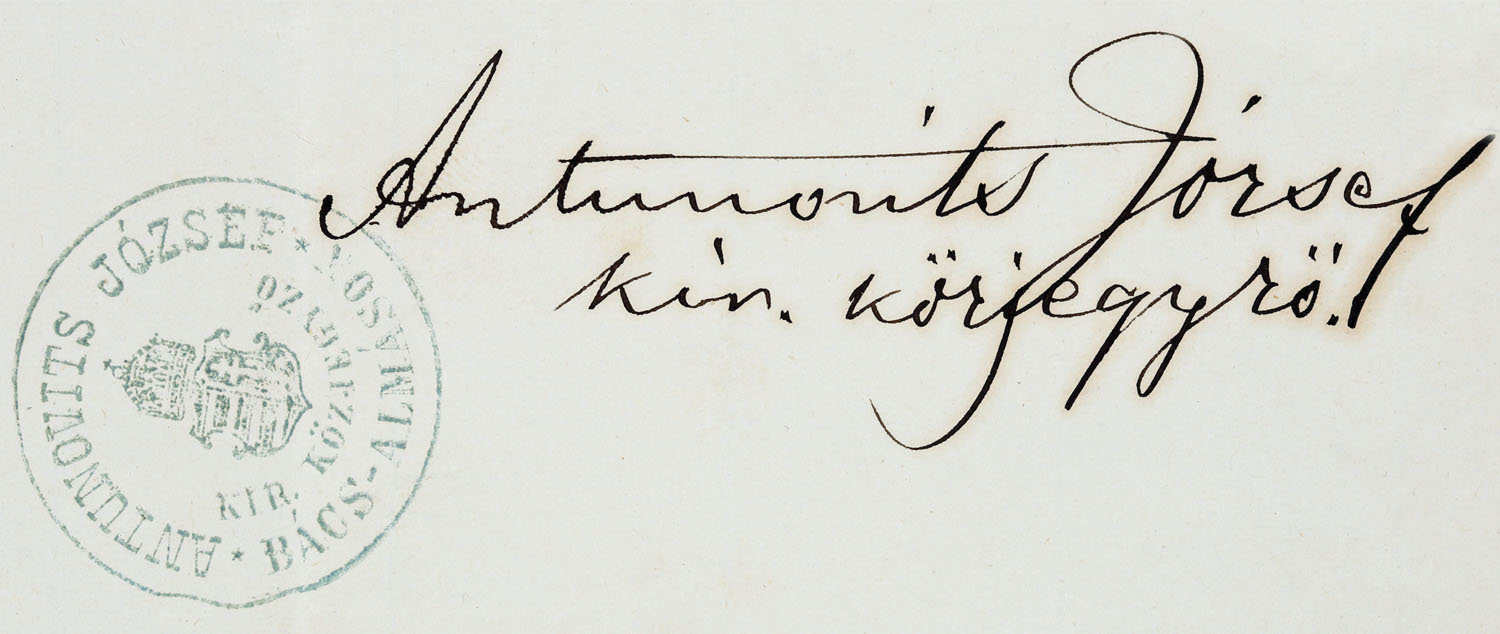 Antunovits József
kir. közjegyző.
ANTUNOVITS JÓZSEF * BÁCS-ALMÁSON *
KIR. KÖZJEGYZŐ